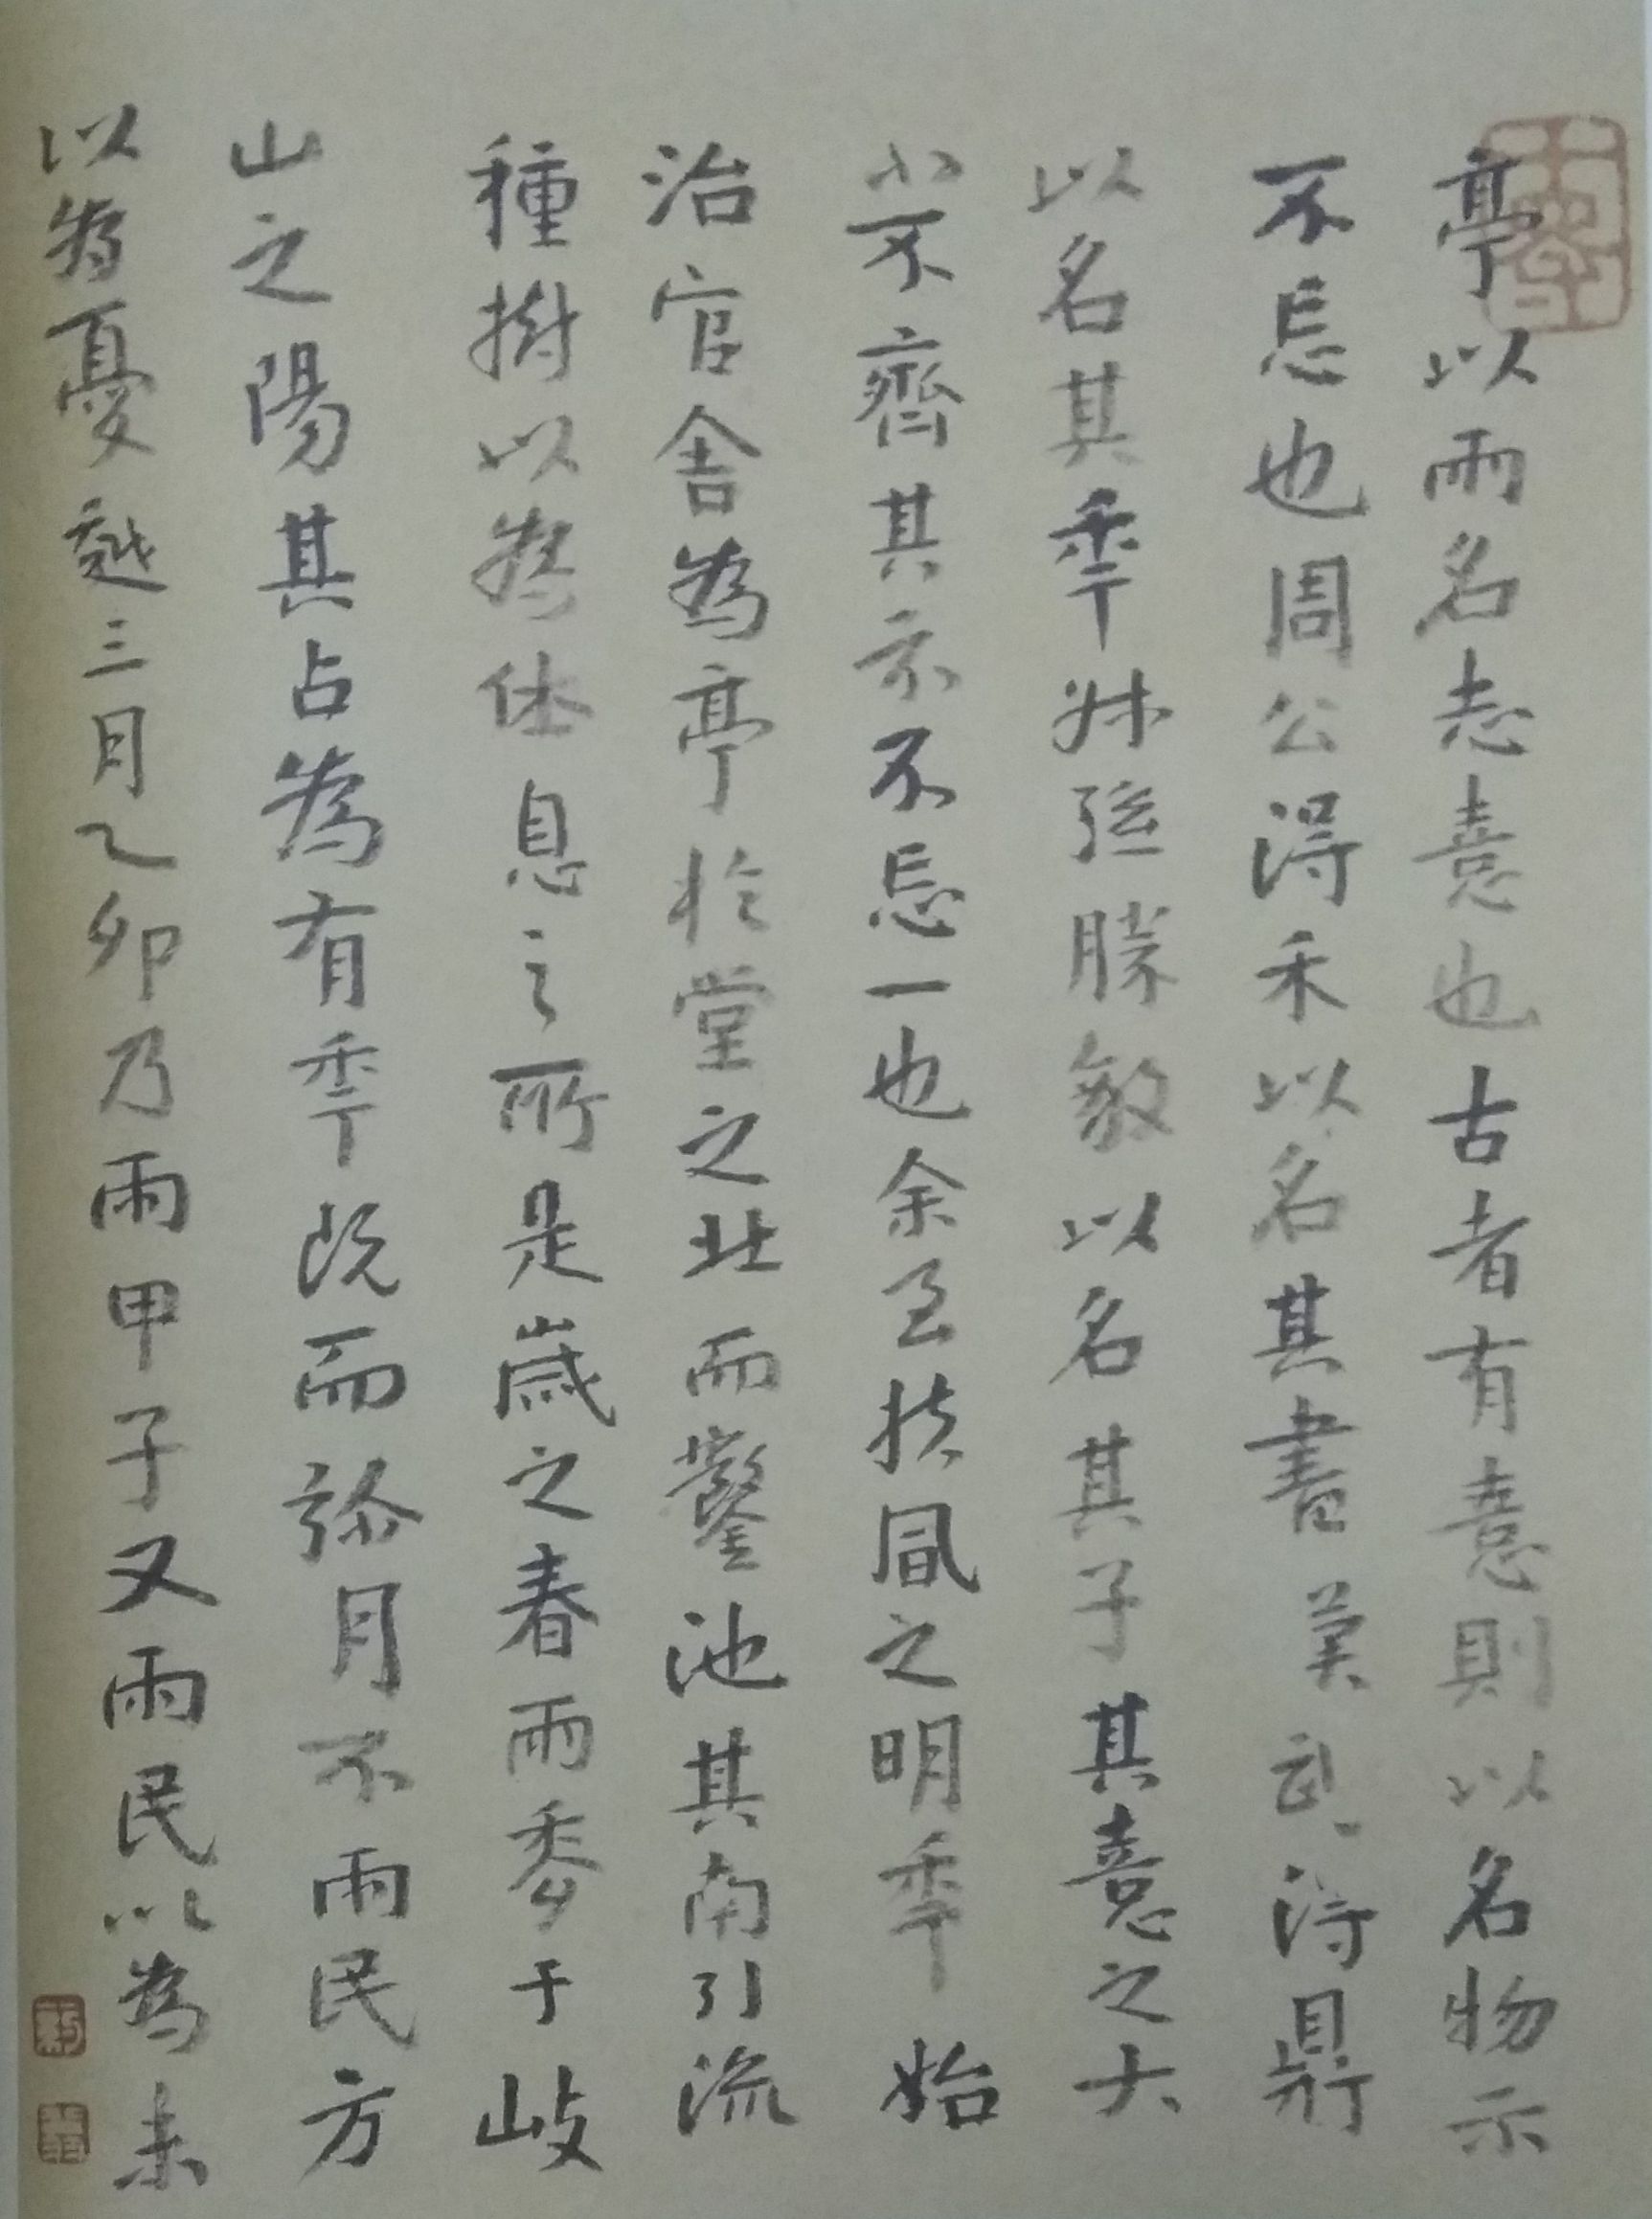 亭以雨名志意也古者有意則以名物示
不忘也周公得禾以名其書漢武得鼎
以名其季叔孫勝敵以名其子其意之大
小不齊其示不忘一也余至扶風之明年始
治官舍為亭於堂之北而鑿池其南引流
種樹以為休息之所是歲之春雨麥于岐
山之陽其占為有年既而彌月不雨民方
以為憂越三月乙卯乃雨甲子又雨民以為未